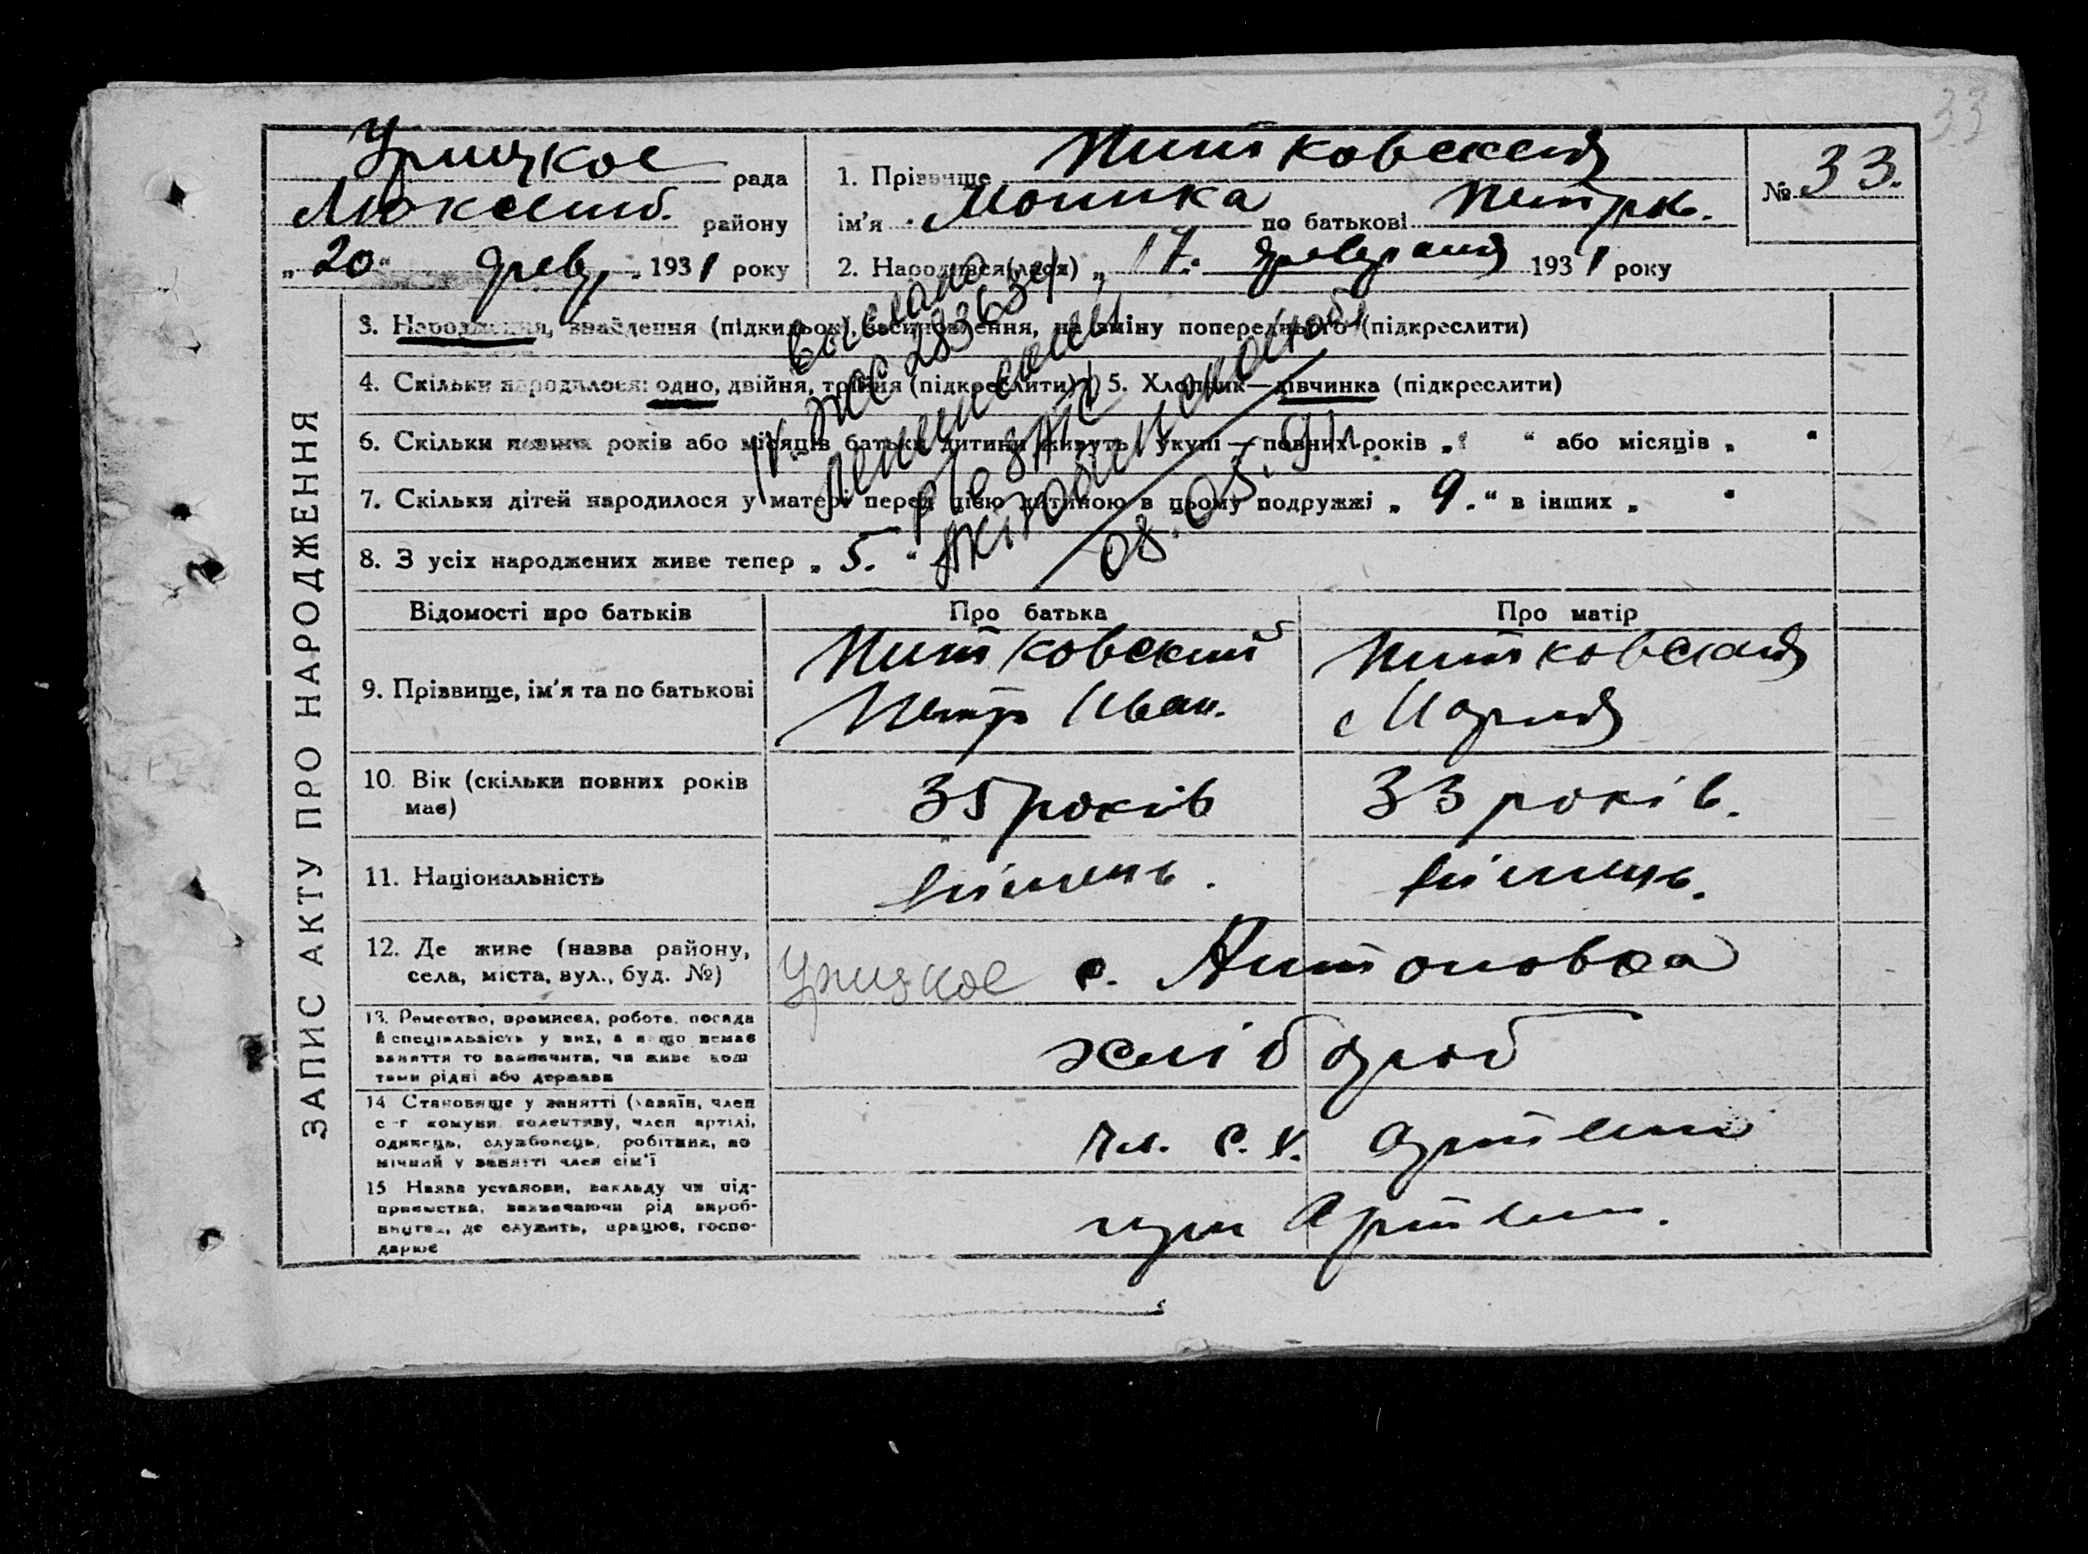 33
Урицкое рада
Люксемб. району
„20“ февр. 1931 року
1. Прізвище Питковская
ім'я Моника по батькові Петров.
2. Народився(лася) „17. февраля 1931 року
№ 33.
ЗАПИС АКТУ ПРО НАРОДЖЕННЯ
3. Народження, знайдення (підкидьок), всиновлення, на зміну попереднього (підкреслити)
4. Скільки народилося: одно, двійня, тройня (підкреслити) 5. Хлопчик—дівчинка (підкреслити)
6. Скільки повних років або місяців батьки дитини живуть укупі — повних років „ “ або місяців „ “
7. Скільки дітей народилося у матері перед цією дитиною в цьому подружжі „ 9. “ в інших „ “
8. З усіх народжених живе тепер „ 5. “
Выслано
IV ЖС 283634
Ленинским
р/о ЗАГС
Житомирской обл
08.05.91г.
Відомості про батьків Про батька Про матір
9. Прізвище, ім'я та по батькові
Питковский
Петр Иван.
Питковская
Мария
10. Вік (скільки повних років має) 35 років 33 років.
11. Національність німець. німець.
12. Де живе (назва району, села, міста, вул., буд. №) Урицкое с. Антоновка
13. Ремество, промисел, робота, посада
й спеціяльність у них, а якщо немає
заняття то зазначити, чи живе кош
тами рідні або держави
хлібороб
14 Становище у занятті (хазяїн, член
с-г комуни колективу, член артілі,
одинець, службовець, робітник, по
мічний у занятті член сім'ї
чл. с. х. артели
15 Назва установи, закладу чи під-
приємства, зазначаючи рід вироб-
ництва, де служить, працює, госпо-
дарює
при Артели.